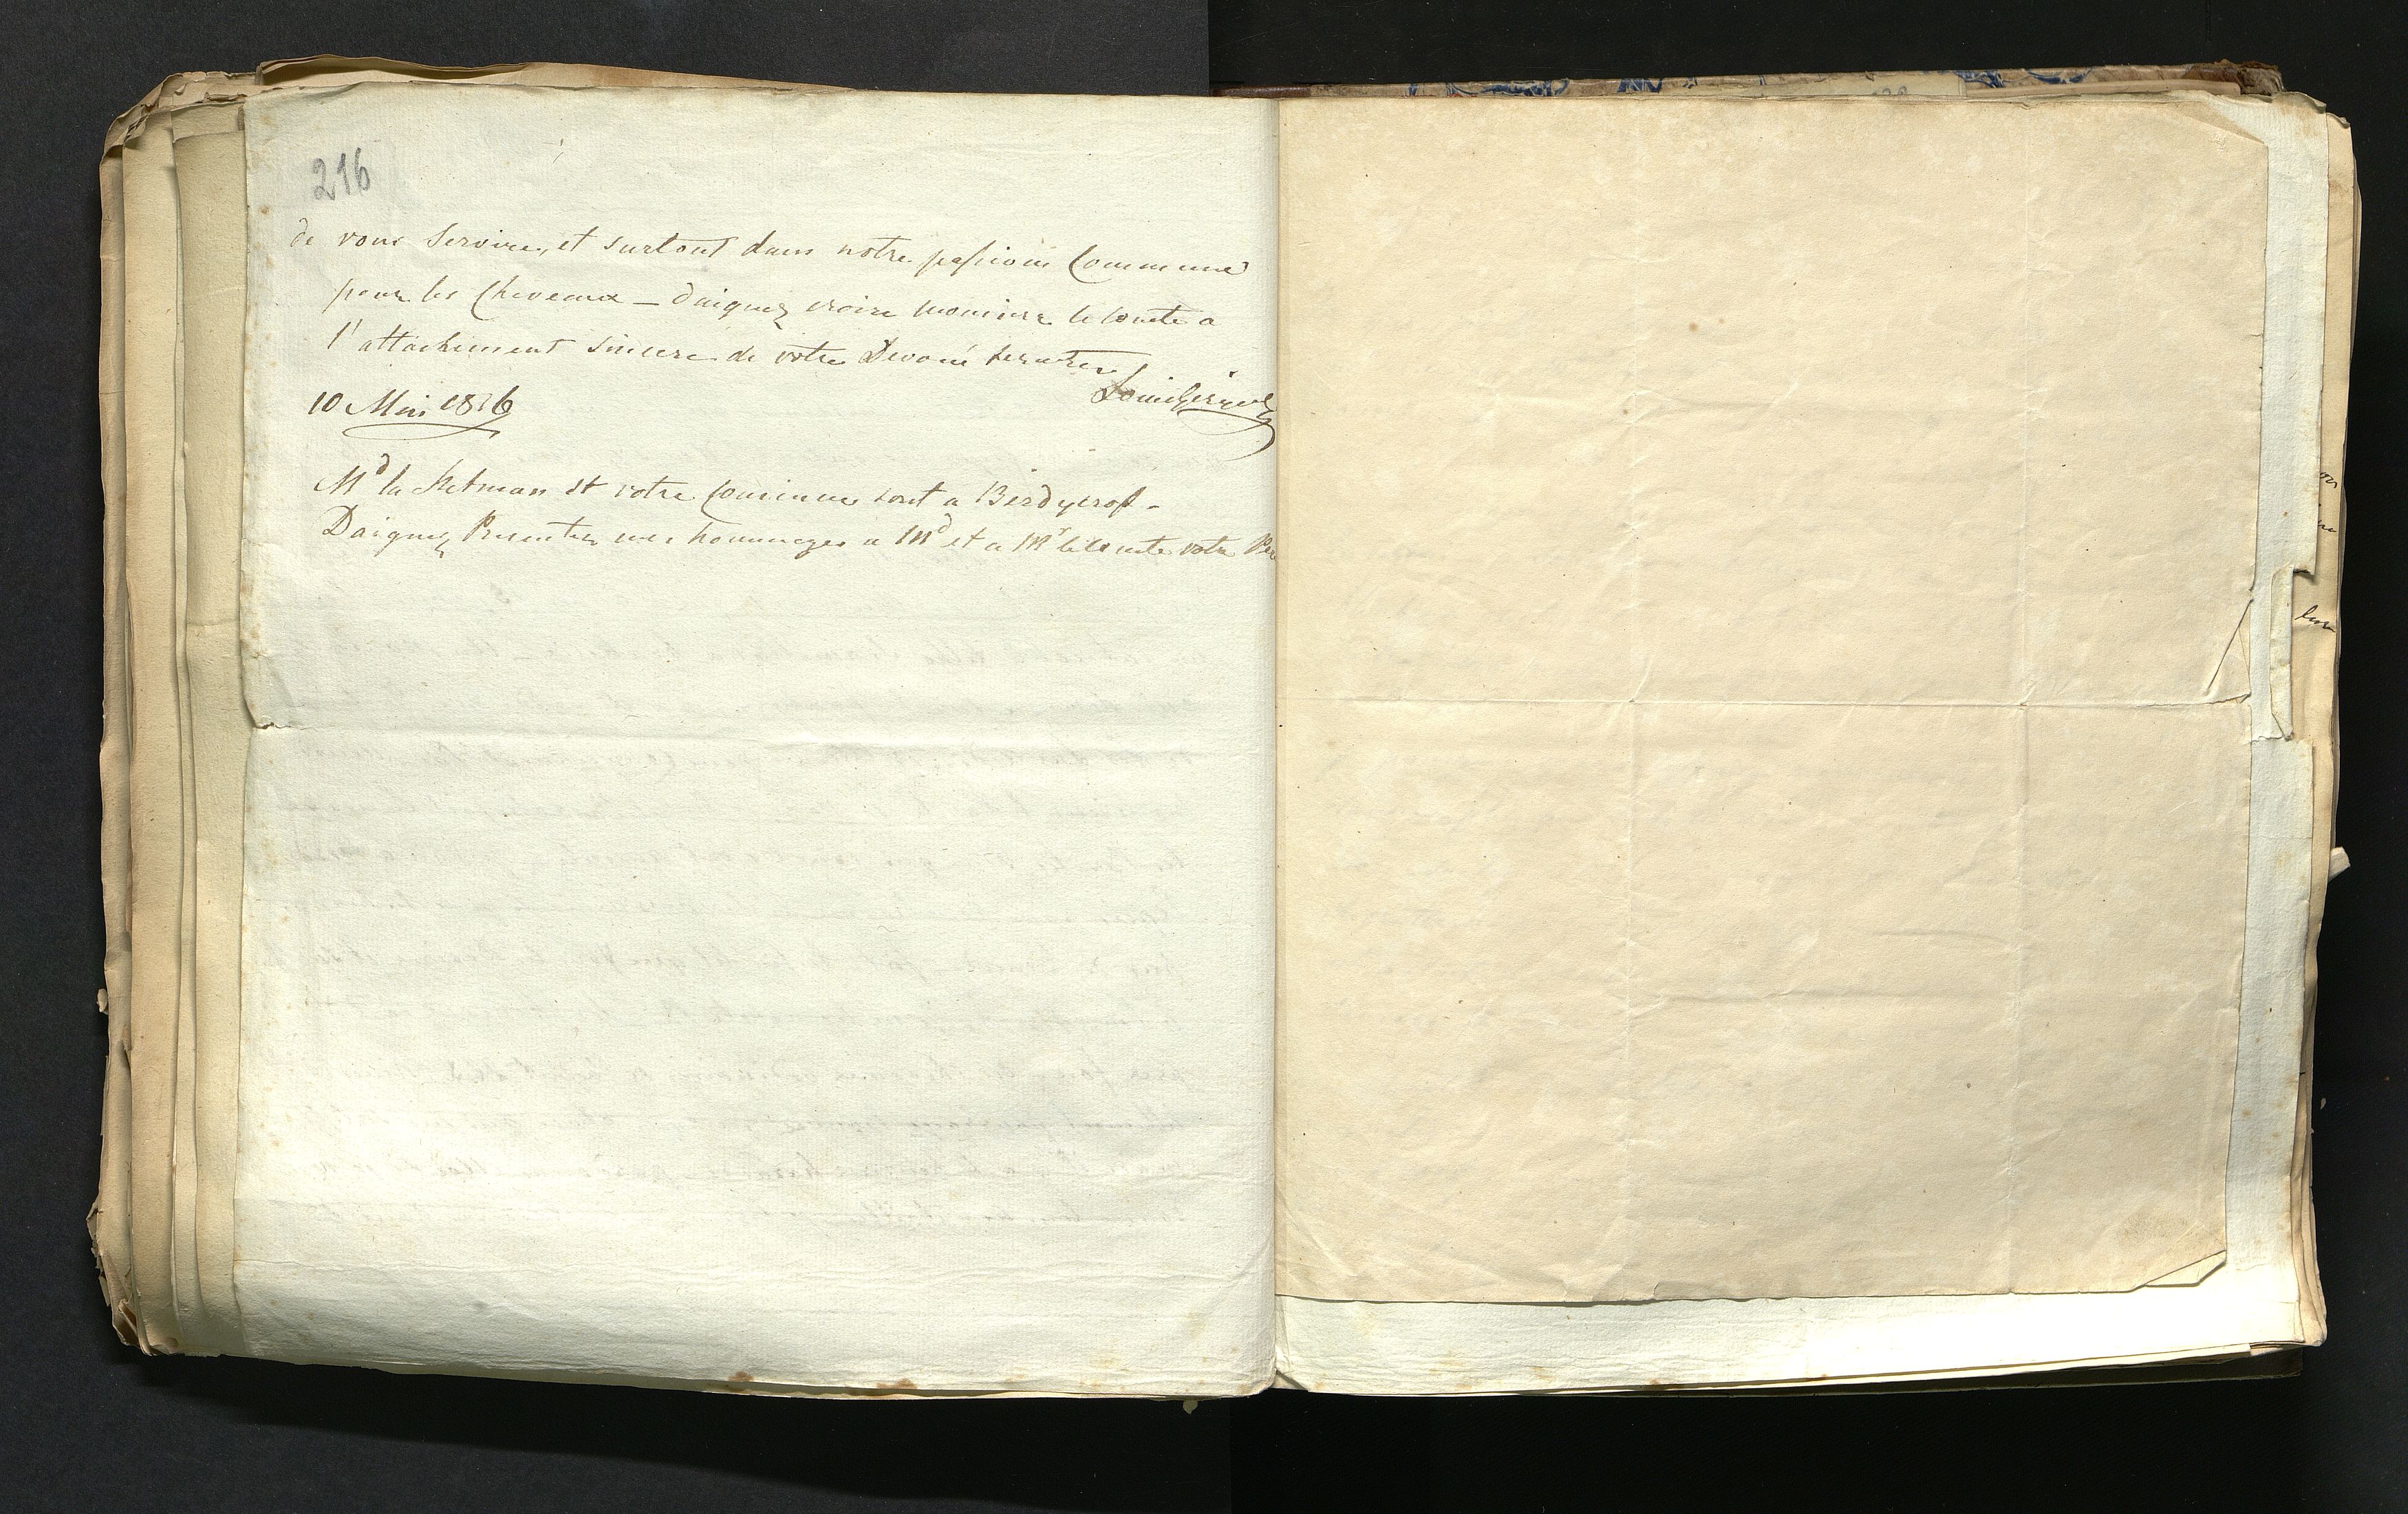 216
de vous Servire, et surtout dans notre passion Commune
pour les Cheveaux – daignez croire monsieur le comte a
l'attachement sincere de votre Devoué serviteur
10 Mai 1816
Md la Hetman et votre Cousinne sont a Berdyczof –
Daignez Presenter mes hommages a Md et a Mr le Comte votre Per